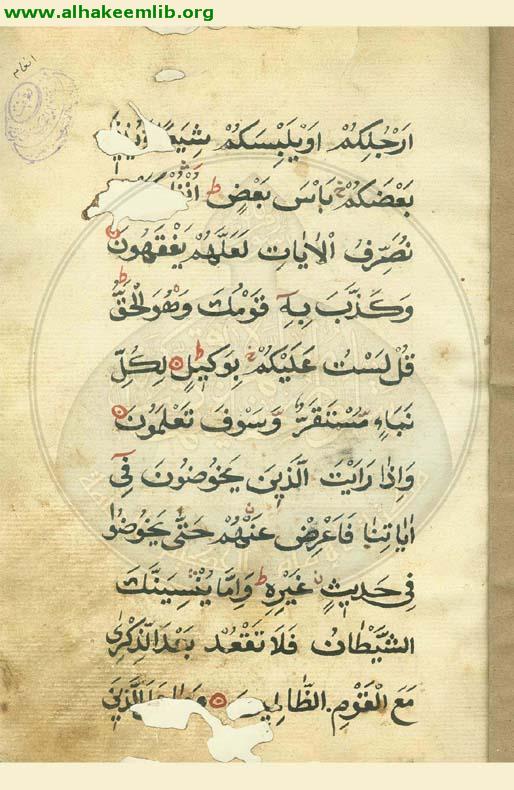 www.alhakeemlib.org
انعام
اَرْجُلِكُمْ اَوْ يَلْبِسَكُمْ شِيَعًا
بَعْضَكُمْ بَاْسَ بَعْضٍ ط
نُصَرِّفُ الْاٰيَاتِ لَعَلَّهُمْ يَفْقَهُونَ
وَكَذَّبَ بِهٖ قَوْمُكَ وَهُوَ الْحَقُّ ط
قُلْ لَسْتُ عَلَيْكُمْ بِوَكِيْلٍ ط لِكُلِّ
نَبَاءٍ مُسْتَقَرٌّ وَسَوْفَ تَعْلَمُونَ
وَاِذَا رَاَيْتَ الَّذِينَ يَخُوْضُوْنَ فِيْ
اٰيَاتِنَا فَاَعْرِضْ عَنْهُمْ حَتّٰى يَخُوْضُوْا
فِيْ حَدِيْثٍ غَيْرِهٖ ط وَاِمَّا يُنْسِيَنَّكَ
الشَّيْطَانُ فَلَا تَقْعُدْ بَعْدَ الذِّكْرٰى
مَعَ الْقَوْمِ الظَّالِمِينَ الَّذِينَ